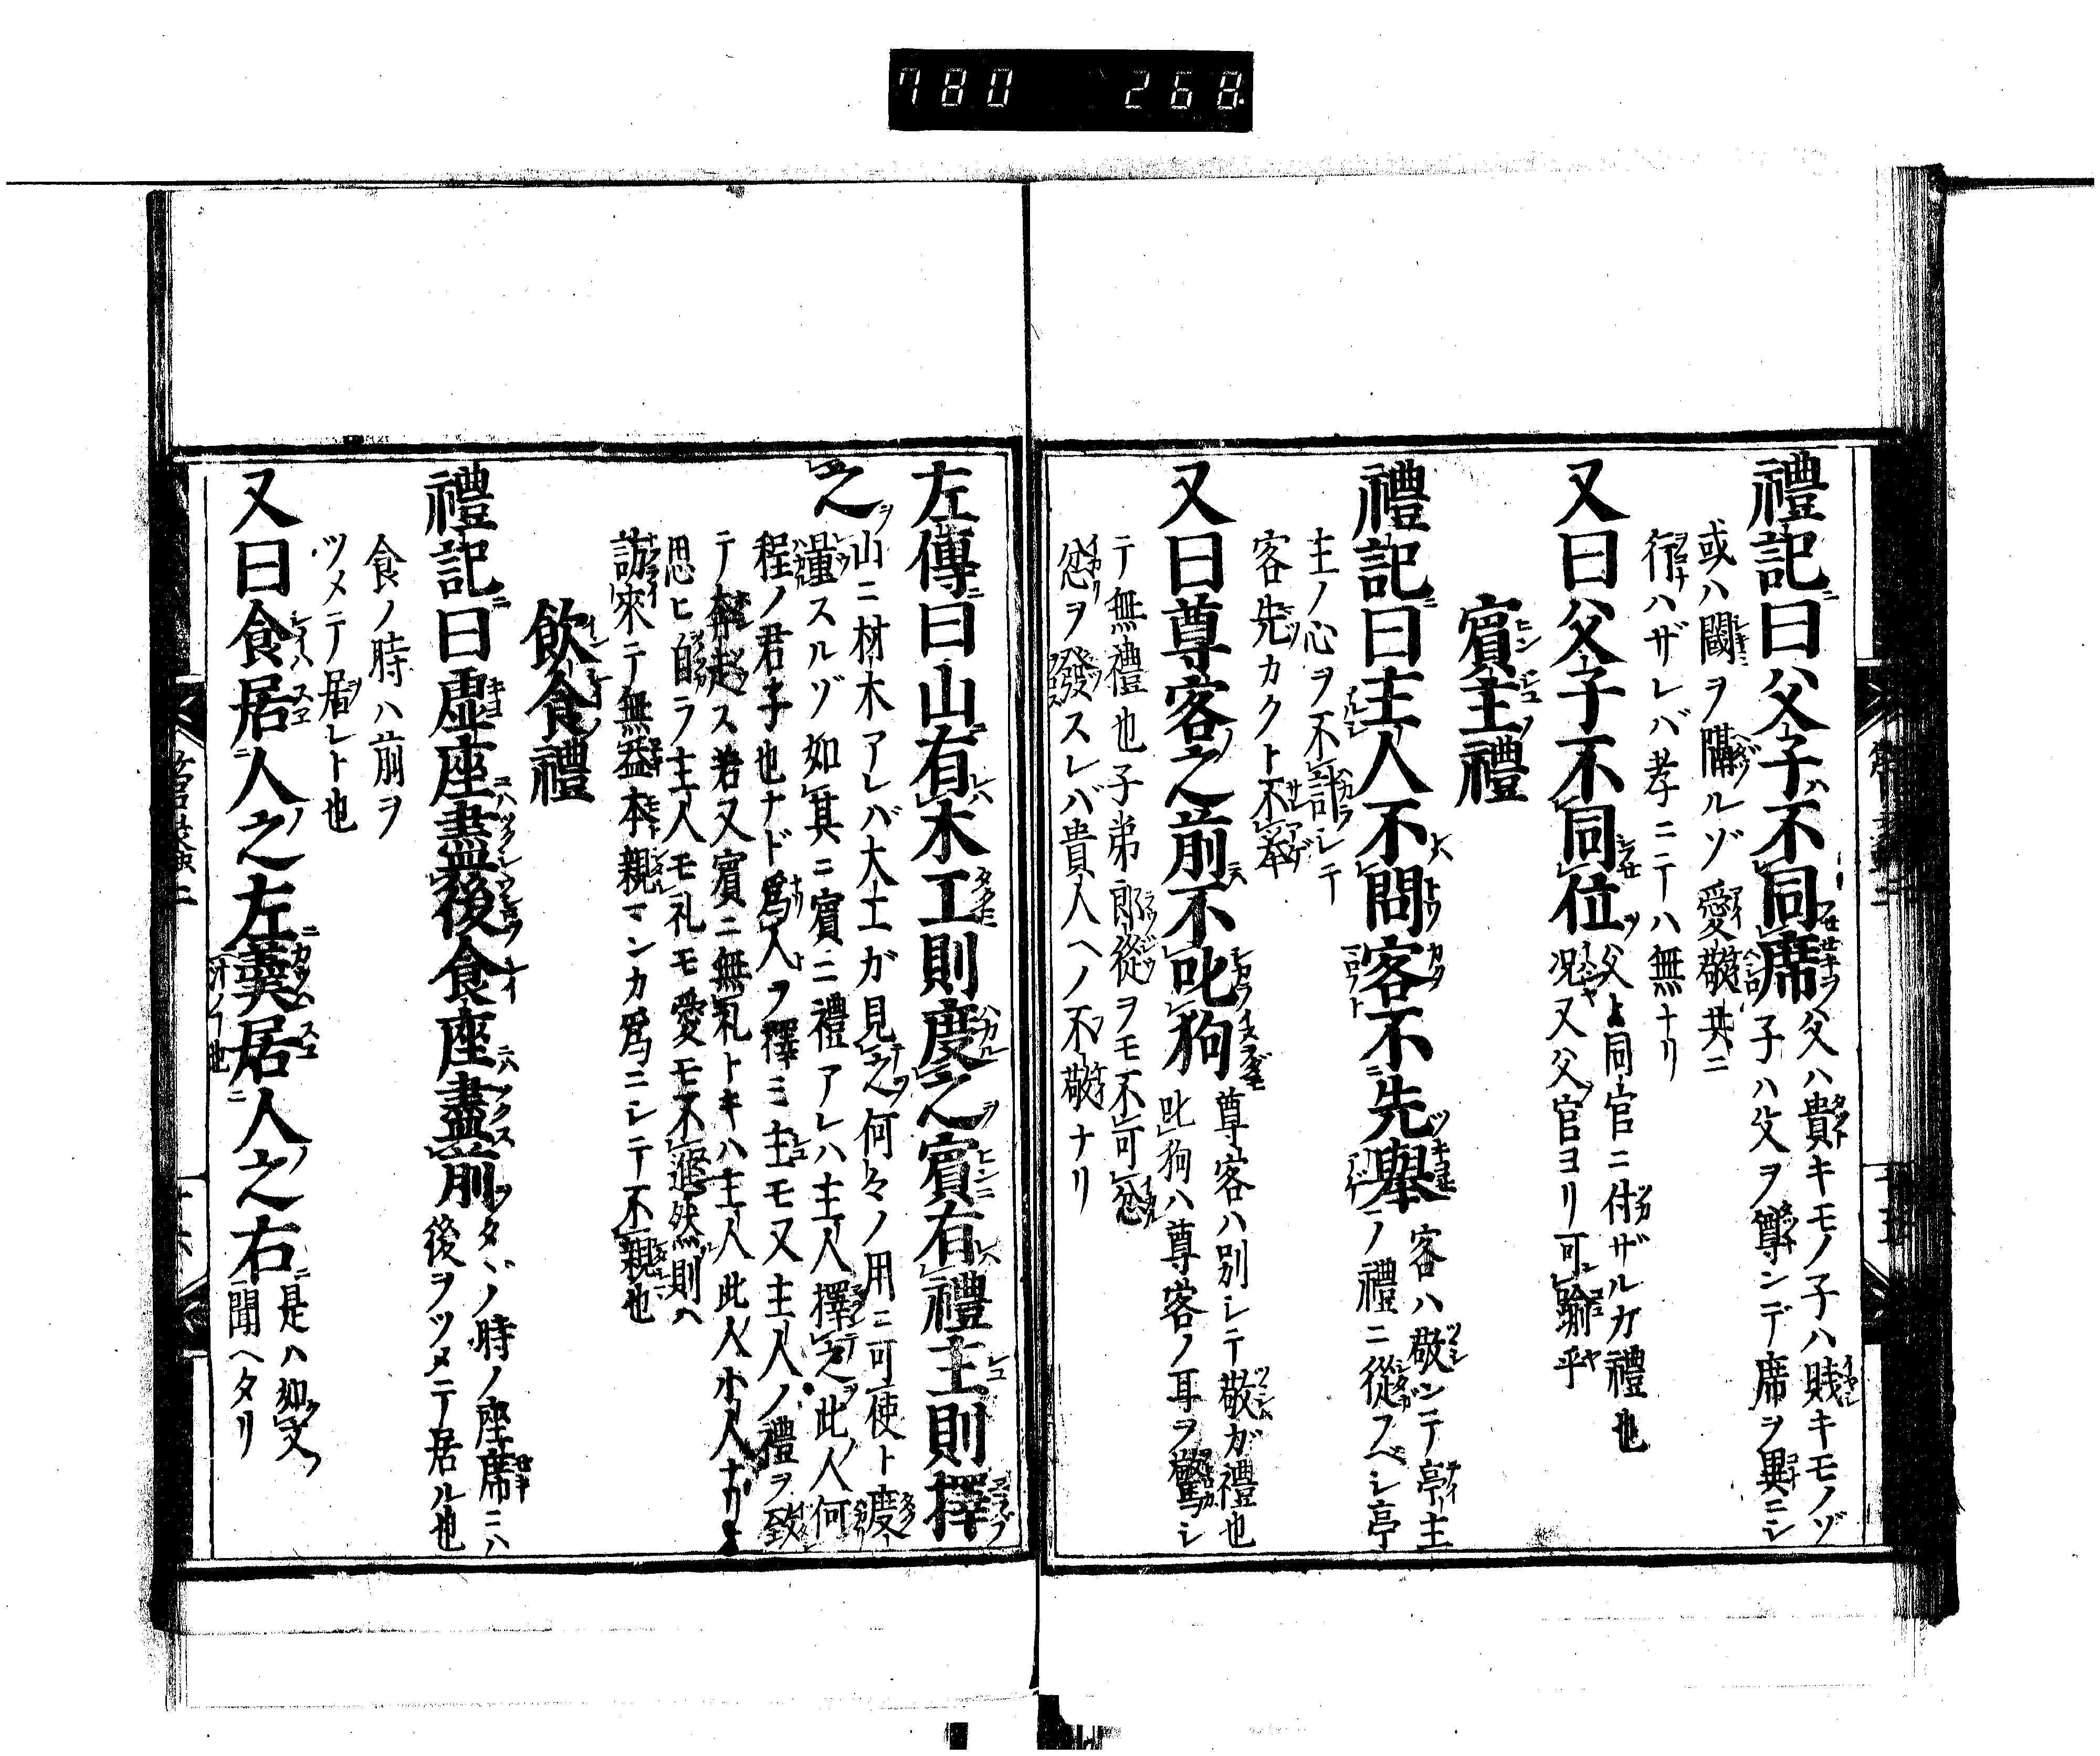 780 268
禮記曰父子不同席父ハ貴キモノ子ハ賤キモノゾ
子ハ父ヲ尊ンデ席ヲ異ニシ
或ハ閾ヲ隔ルゾ愛敬共ニ
行ハザレバ孝ニテハ無ナリ
又曰父子不同位父ト同官ニ付ザルガ禮也
况又父官ヨリ可踰乎
賓主禮
禮記曰主人不問客不先舉客ハ敬ンテ亭主
ノ禮ニ從フベシ亭
主ノ心ヲ不計シテ
客先カクト不举
又曰尊客之前不叱狗尊客ハ別レテ敬ガ禮也
叱狗ハ尊客ノ耳ヲ驚シ
テ無禮也子弟郎從ヲモ不可忿
忿ヲ發スレバ貴人ヘノ不敬ナリ
左傳曰山有木工則度之賓有禮主則擇
之山ニ材木アレバ大工ガ見之何々ノ用ニ可使ト度
量スルゾ如其ニ賓ニ禮アレハ主人擇之此人何
程ノ君子也ナド爲人ヲ擇ミ主モ又主人ノ禮ヲ致
テ奔趍ス若又賓ニ無礼トキハ主人此人小人ナリト
思ヒ自ラ主人モ礼モ愛モ不進然則ハ
訪來テ無益本親マンカ爲ニシテ不親也
飲食禮
禮記曰虚座盡後食座盡前タヾノ時ノ座席ニハ
後ヲツメテ居ル也
食ノ時ハ前ヲ
ツメテ居レト也
又曰食居人之左羹居人之右是ハ如文
聞ヘタリ